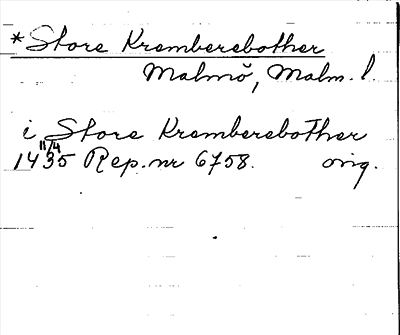 *Store Krembersbother
Malmö, Malm. l.
i Store Krembersbother
1435 11/4 Rep. nr 6758. orig.